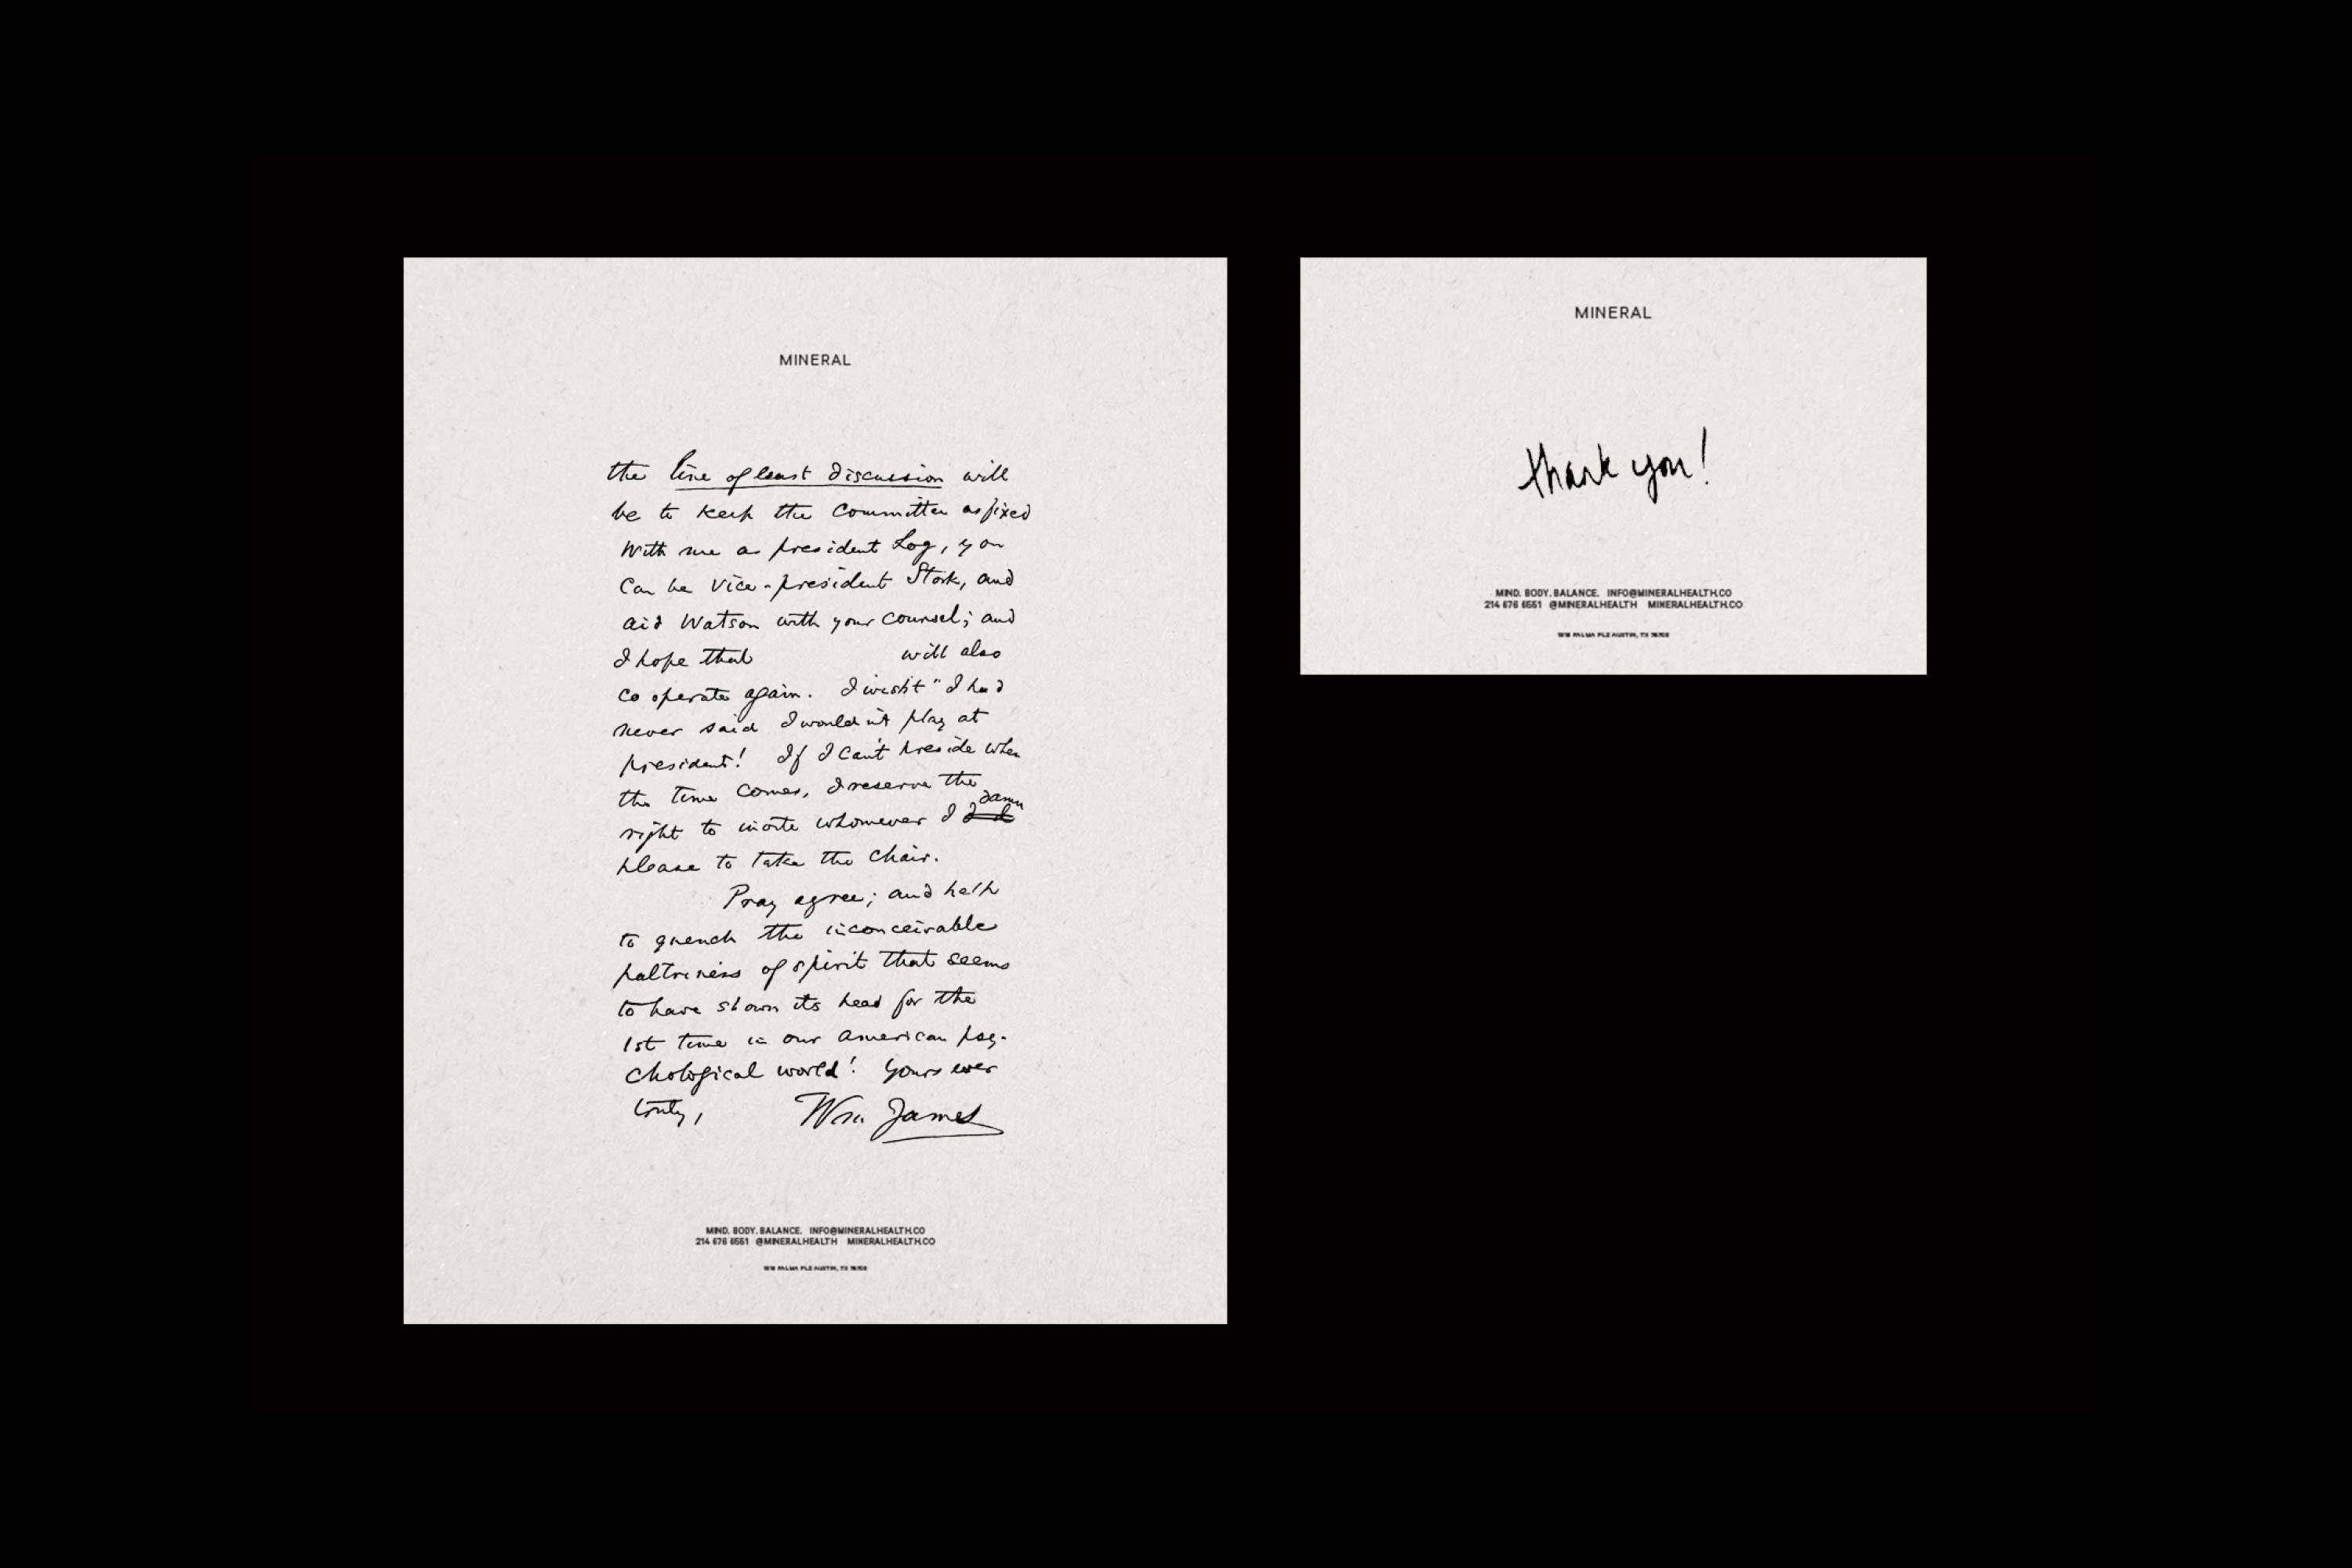 MINERAL
the line of least discussion will
be to keep the Committee as fixed
With me as president Log, you
Can be Vice-president Stork, and
aid Watson with your counsel; and
I hope that will also
cooperate again. I wisht" I had
never said I wouldn't play at
president! If I can't preside when
the time comes, I reserve the
damn
right to invite whomever I
please to take the chair.
Pray agree; and help
to quench the inconceivable
paltriness of spirit that seems
to have shown its head for the
1st time in our American psy-
chological world! Yours ever
truly, Wm. James
MIND. BODY. BALANCE. INFO@MINERALHEALTH.CO
214 676 6551 @MINERALHEALTH MINERALHEALTH.CO
PALMA PLZ AUSTIN, TX
MINERAL
thank you!
MIND. BODY. BALANCE. INFO@MINERALHEALTH.CO
214 676 6551 @MINERALHEALTH MINERALHEALTH.CO
PALMA PLZ AUSTIN, TX